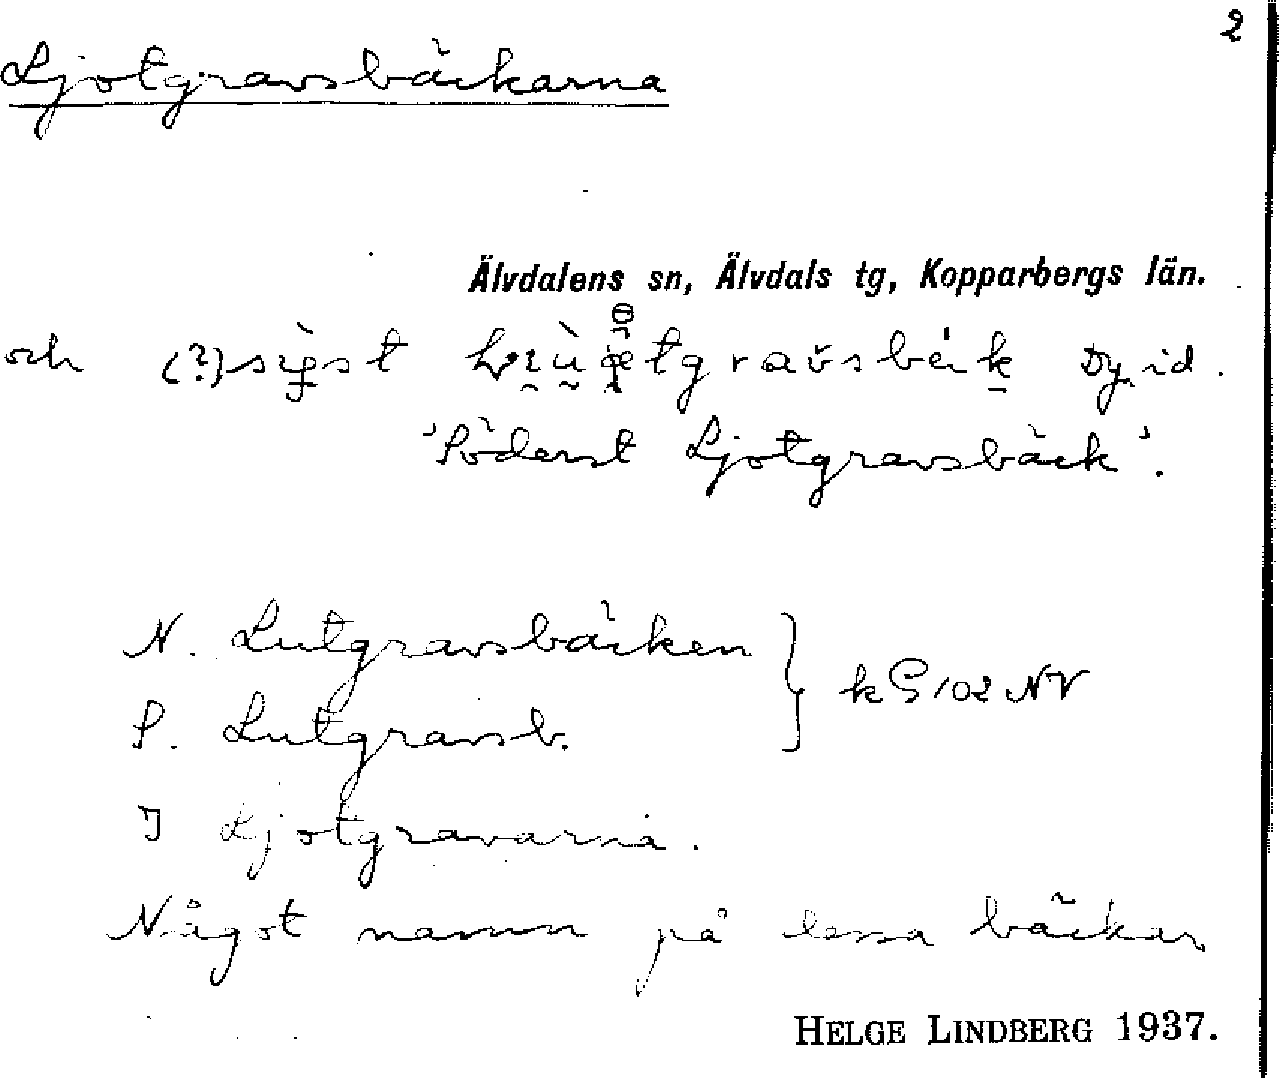 2
Ljotgravsbäckarna
Älvdalens sn, Älvdals tg, Kopparbergs län.
och (?) Dy. id.
'Söderst Ljotgravsbäck'.
N. Lutgravsbäcken
S. Lutgravsb. } kG 102 NV
I Ljotgravarna.
Något namn på dessa bäckar
HELGE LINDBERG 1937.